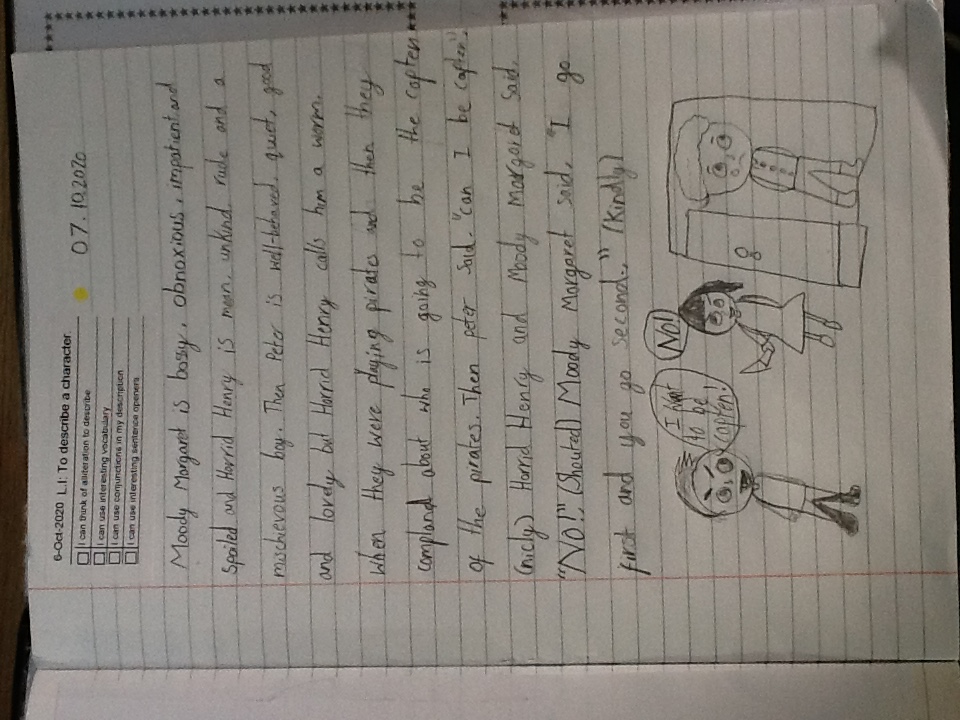 6-Oct-2020 L.I: To describe a character
07.10.2020
I can think of alliteration to describe
I can use interesting vocabulary
I can use conjunctions in my description
I can use interesting sentence openers
Moody Margaret is bossy, obnoxious, impatient and
Spoiled and Horrid Henry is mean, unkind, rude and a
mischievous boy. Then Peter is well-behaved, quiet, good
and lovely but Horrid Henry calls him a worm.
When they were playing pirates and then they
compland about who is going to be the capten
of the pirates. Then peter said. "can I be capten".
(nicly) Horrid Henry and Moody Margaret said,
"No!". (Shouted) Moody Margaret said, "I go
first and you go second.." (Kindly)
I want
to be
capten!
NO!